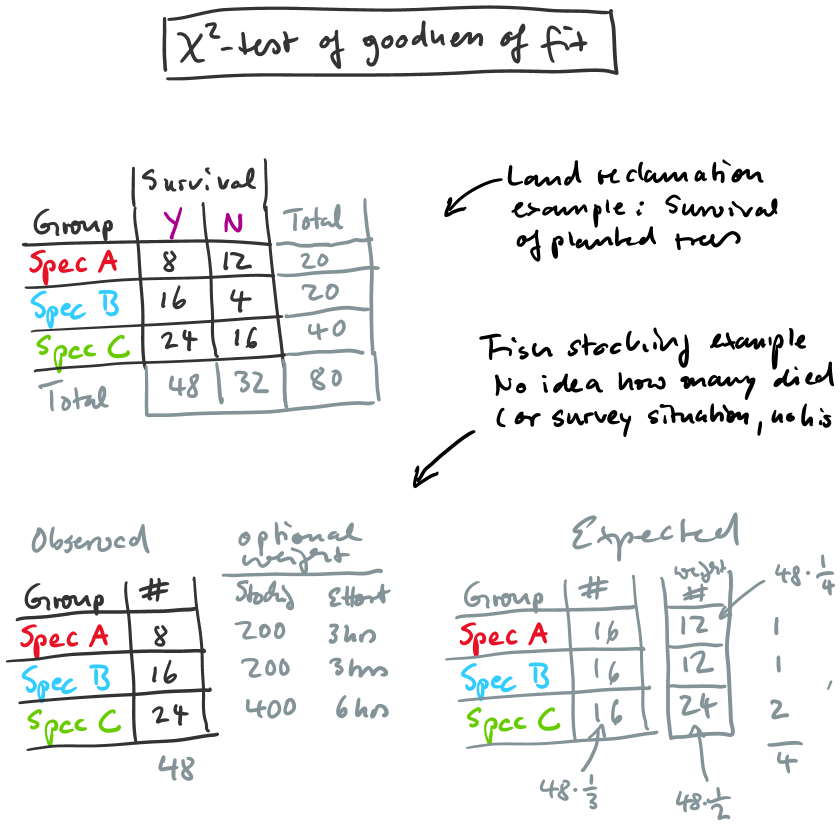 χ²-test of goodness of fit
Survival
Group Y N Total
Spec A 8 12 20
Spec B 16 4 20
Spec C 24 16 40
Total 48 32 80
Land reclamation
example: Survival
of planted trees
Fish stocking example
No idea how many died
(or survey situation, no his
Observed
Group #
Spec A 8
Spec B 16
Spec C 24
48
optional
weight
Stocking Effort
200 3hrs
200 3hrs
400 6hrs
Expected
Group # weight #
Spec A 16 12 1
Spec B 16 12 1
Spec C 16 24 2
4
48·1/4
48·1/3
48·1/2